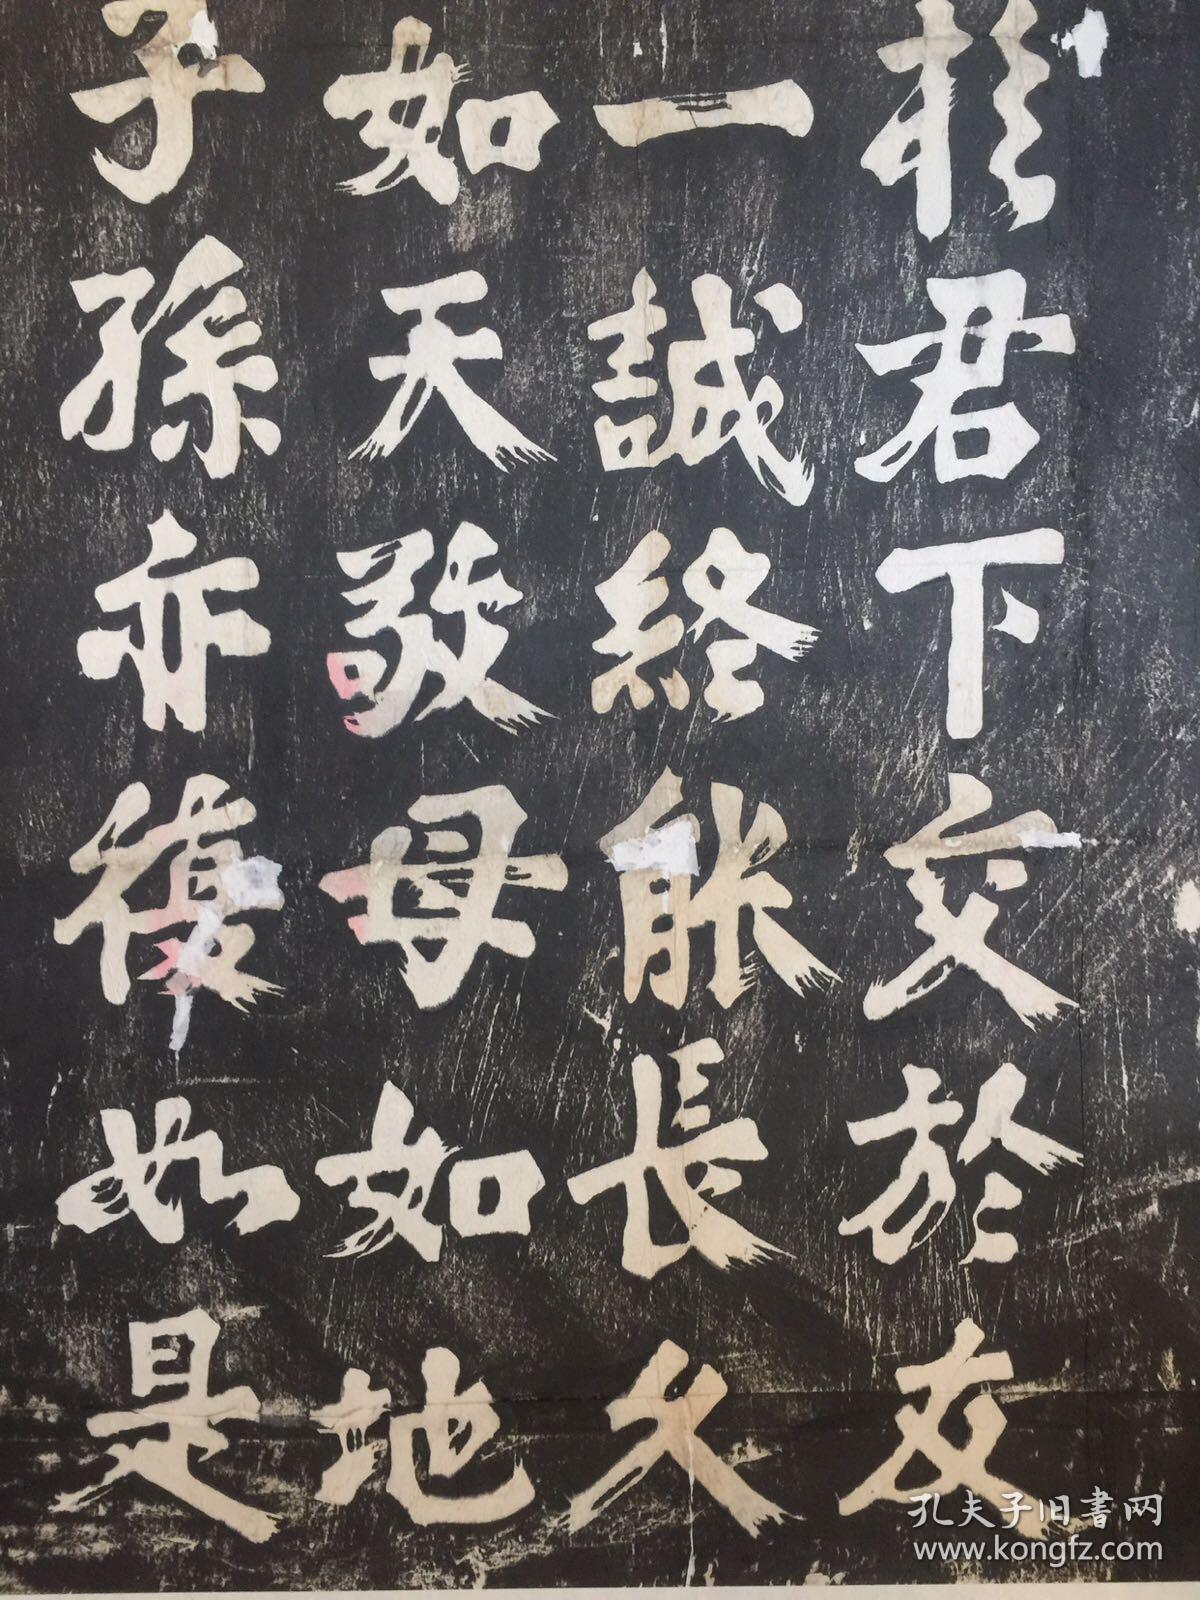 於君下交於友
一誠終能長久
如天敬母如地
子孫亦復如是
孔夫子旧書网
www.kongfz.com